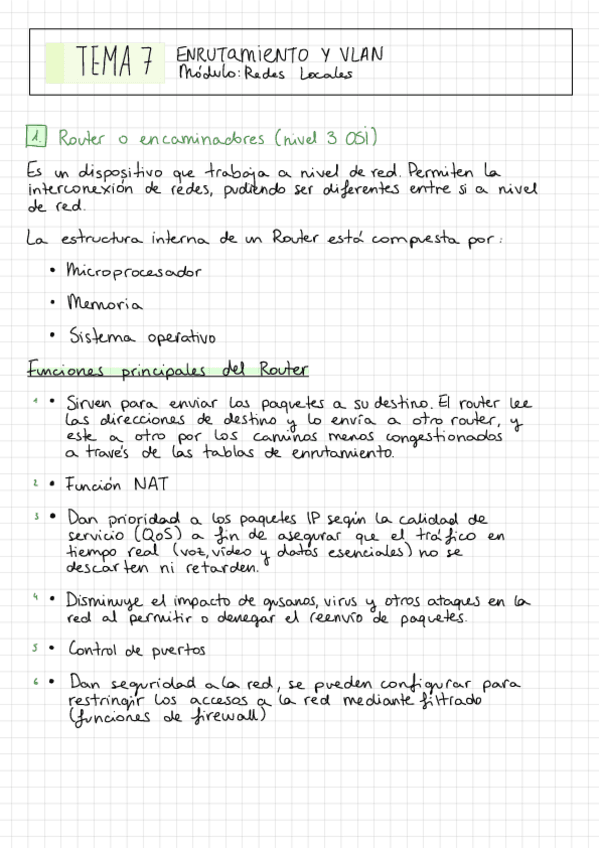 TEMA 7
ENRUTAMIENTO Y VLAN
Módulo: Redes Locales
1. Router o encaminadores (nivel 3 OSI)
Es un dispositivo que trabaja a nivel de red. Permiten la
interconexión de redes, pudiendo ser diferentes entre si a nivel
de red.
La estructura interna de un Router está compuesta por:
• Microprocesador
• Memoria
• Sistema operativo
Funciones principales del Router
1 • Sirven para enviar los paquetes a su destino. El router lee
las direcciones de destino y lo envía a otro router, y
este a otro por los caminos menos congestionados
a través de las tablas de enrutamiento.
2 • Función NAT
3 • Dan prioridad a los paquetes IP según la calidad de
servicio (QoS) a fin de asegurar que el tráfico en
tiempo real (voz, vídeo y datos esenciales) no se
descarten ni retarden.
4 • Disminuye el impacto de gusanos, virus y otros ataques en la
red al permitir o denegar el reenvío de paquetes.
5 • Control de puertos
6 • Dan seguridad a la red, se pueden configurar para
restringir los accesos a la red mediante filtrado
(funciones de firewall)